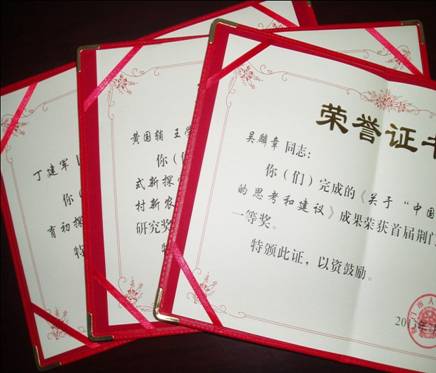 荣誉证书
吴麟章 同志:
你(们)完成的《关于“中国
的思考和建议》成果荣获首届荆门
一等奖。
特颁此证，以资鼓励。
黄国辅 王
你(
式新探
村新农
研究奖
特
丁建军
你
育初探
特